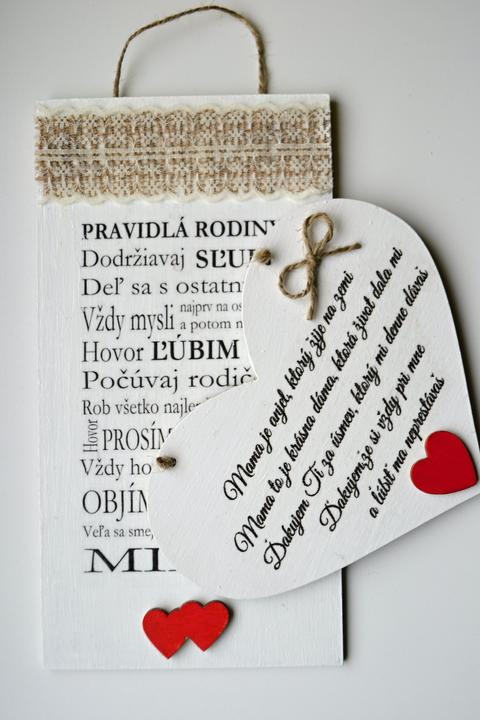 PRAVIDLÁ RODINY
Dodržiavaj
Deľ sa s ostatn
Vždy mysli najprv na os
a potom n
Hovor ĽÚBIM
Počúvaj rodič
Rob všetko najle
Hovor PROSÍM
Vždy ho
OBJÍM
Veľa sa smej
Mama je anjel, ktorý žije na zemi
Mama to je krásna dáma, ktorá život dala mi
Ďakujem Ti za úsmev, ktorý mi denne dávaš
Ďakujem že si vždy pri mne
a ľúbiť ma neprestávaš